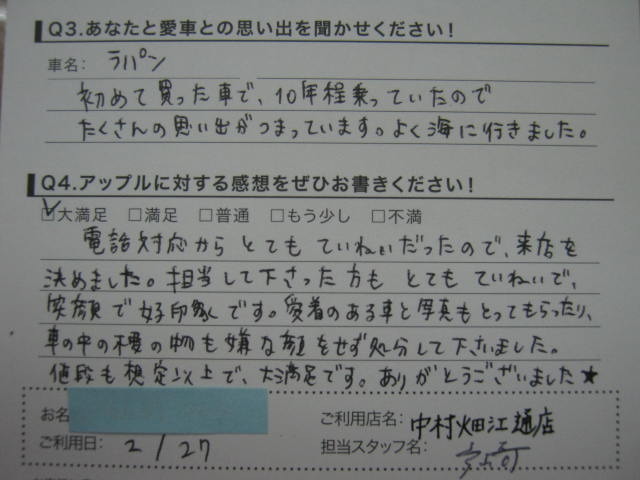 Q3.あなたと愛車との思い出を聞かせください!
車名: ラパン
初めて買った車で、10年程乗っていたので
たくさんの思い出がつまっています。よく海に行きました。
Q4.アップルに対する感想をぜひお書きください!
☑大満足 □満足 □普通 □もう少し □不満
電話対応からとてもていねいだったので、来店を
決めました。担当して下さった方もとてもていねいで、
笑顔で好印象です。愛着のある車と写真もとってもらったり、
車の中の不要の物も嫌な顔をせず処分して下さいました。
値段も想定以上で、大満足です。ありがとうございました★
お名
ご利用店名: 中村畑江通店
ご利用日: 2/27
担当スタッフ名: